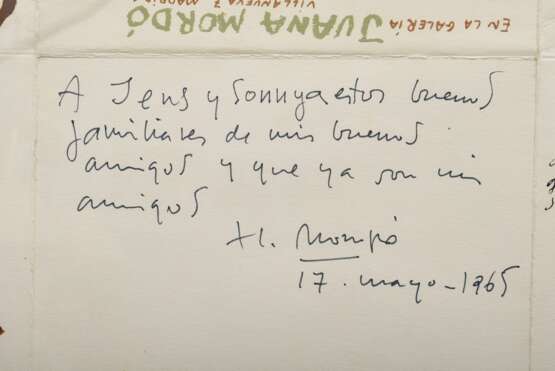 EN LA GALERÍA JUANA MORDÓ
VILLANUEVA 7 MADRID
A Jens y Sonnya estos buenos
familiares de mis buenos
amigos y que ya son mis
amigos
H. Mompó
17. mayo-1965